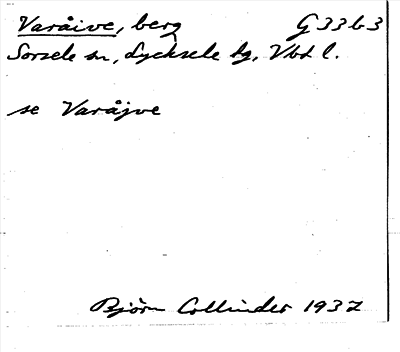 Varåive, berg G 33 b 3
Sorsele sn, Lycksele tg, Vbt l.
se Varåjve
Björn Collinder 1937